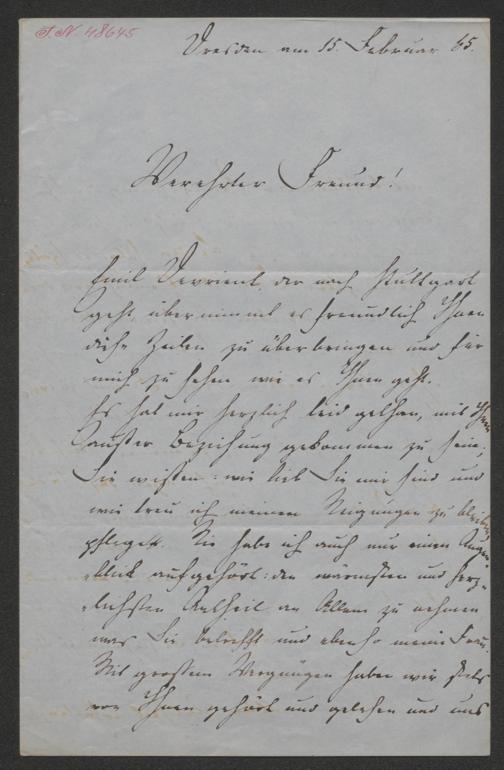 J. N. 48645
Dresden am 15. Februar 65.
Verehrter Freund!
Emil Devrient, der nach Stuttgart
geht, übernimmt es freundlich Ihnen
diese Zeilen zu überbringen und für
mich zu sehen wie es Ihnen geht.
Es hat mir herzlich leid gethan, mit Ihnen
außer Beziehung gekommen zu sein;
Sie wissen: wie lieb Sie mir sind und
wie treu ich meinen Neigungen zu bleiben
pflege. Nie habe ich auch nur einen Augen-
blick aufgehört: den wärmsten und herz-
lichsten Antheil an Allem zu nehmen
was Sie betrifft und ebenso meine Frau.
Mit grossem Vergnügen haben wir stets
von Ihnen gehört und gelesen und uns